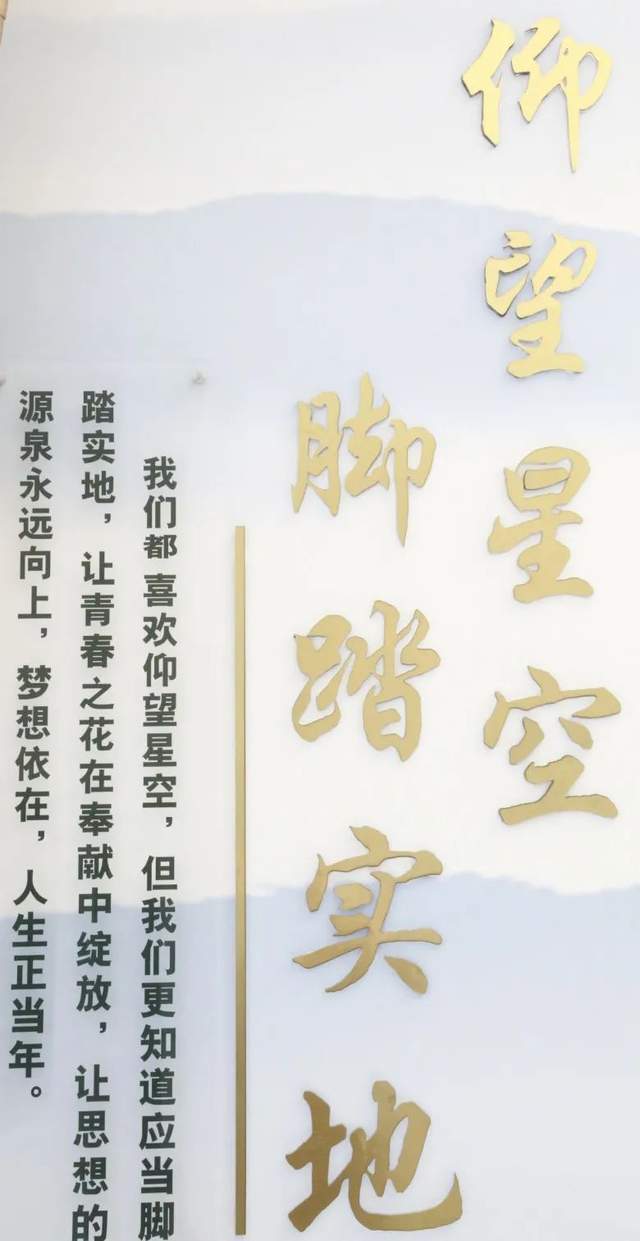 仰望星空
脚踏实地
我们都喜欢仰望星空，但我们更知道应当脚
踏实地，让青春之花在奉献中绽放，让思想的
源泉永远向上，梦想依在，人生正当年。